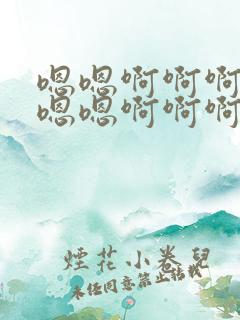 嗯嗯啊啊啊
嗯嗯啊啊啊
煙花小卷兒
未经同意禁止转载